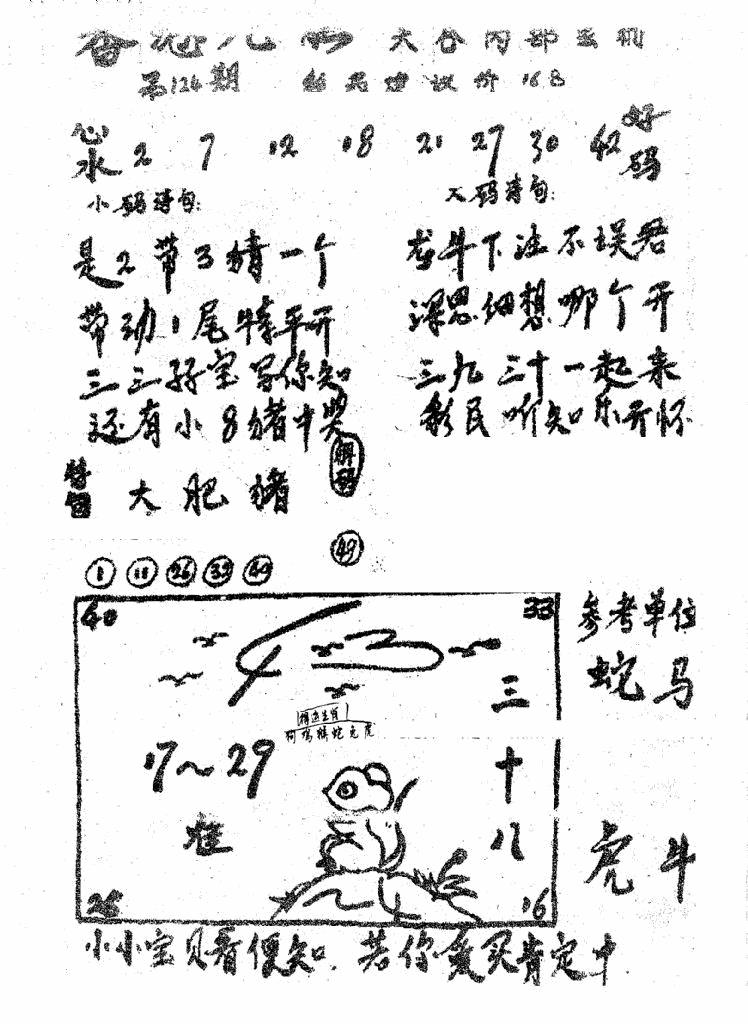 大公内部玄机
第124期
心水 2 7 12 18 21 27 30 42 好码
小码诗句: 大码诗句:
是2带3猜一个
带动1尾特平开
三三好宝写你知
还有小8猪中奖
龙牛下注不误君
深思细想哪个开
三九三十一起来
彩民听知乐开怀
特留 大肥猪
解码
49
1 11 26 32 49
40 33
三十八
17~29
准
26 16
参考单位
蛇马
虎牛
小小宝贝看便知.若你爱买肯定中